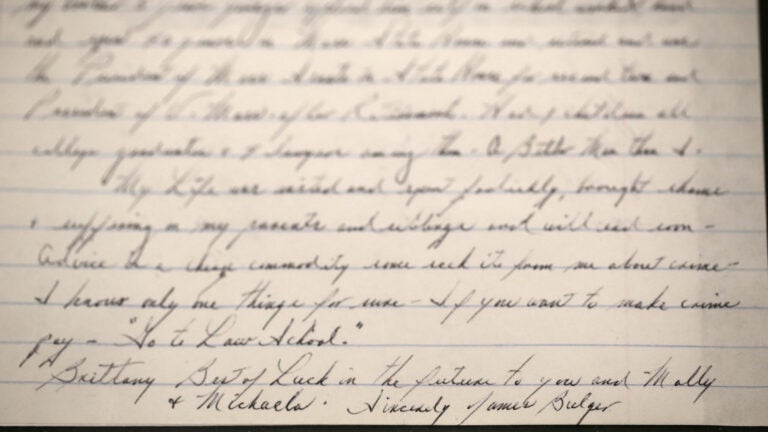 my
and spent in Mass State House and retired and was
the President of Mass Senate in State House for record time and
President of U. Mass - after Retirement. Had 9 children all
college graduates & 4 lawyers among them - A Better Man than I.
My Life was wasted and spent foolishly, brought shame
& suffering on my parents and siblings and will end soon -
Advice is a cheap commodity some seek it from me about crime -
I know only one thing for sure - If you want to make crime
pay - "Go to Law School."
Brittany Best of Luck in the future to you and Molly
& Michaela. Sincerely James Bulger